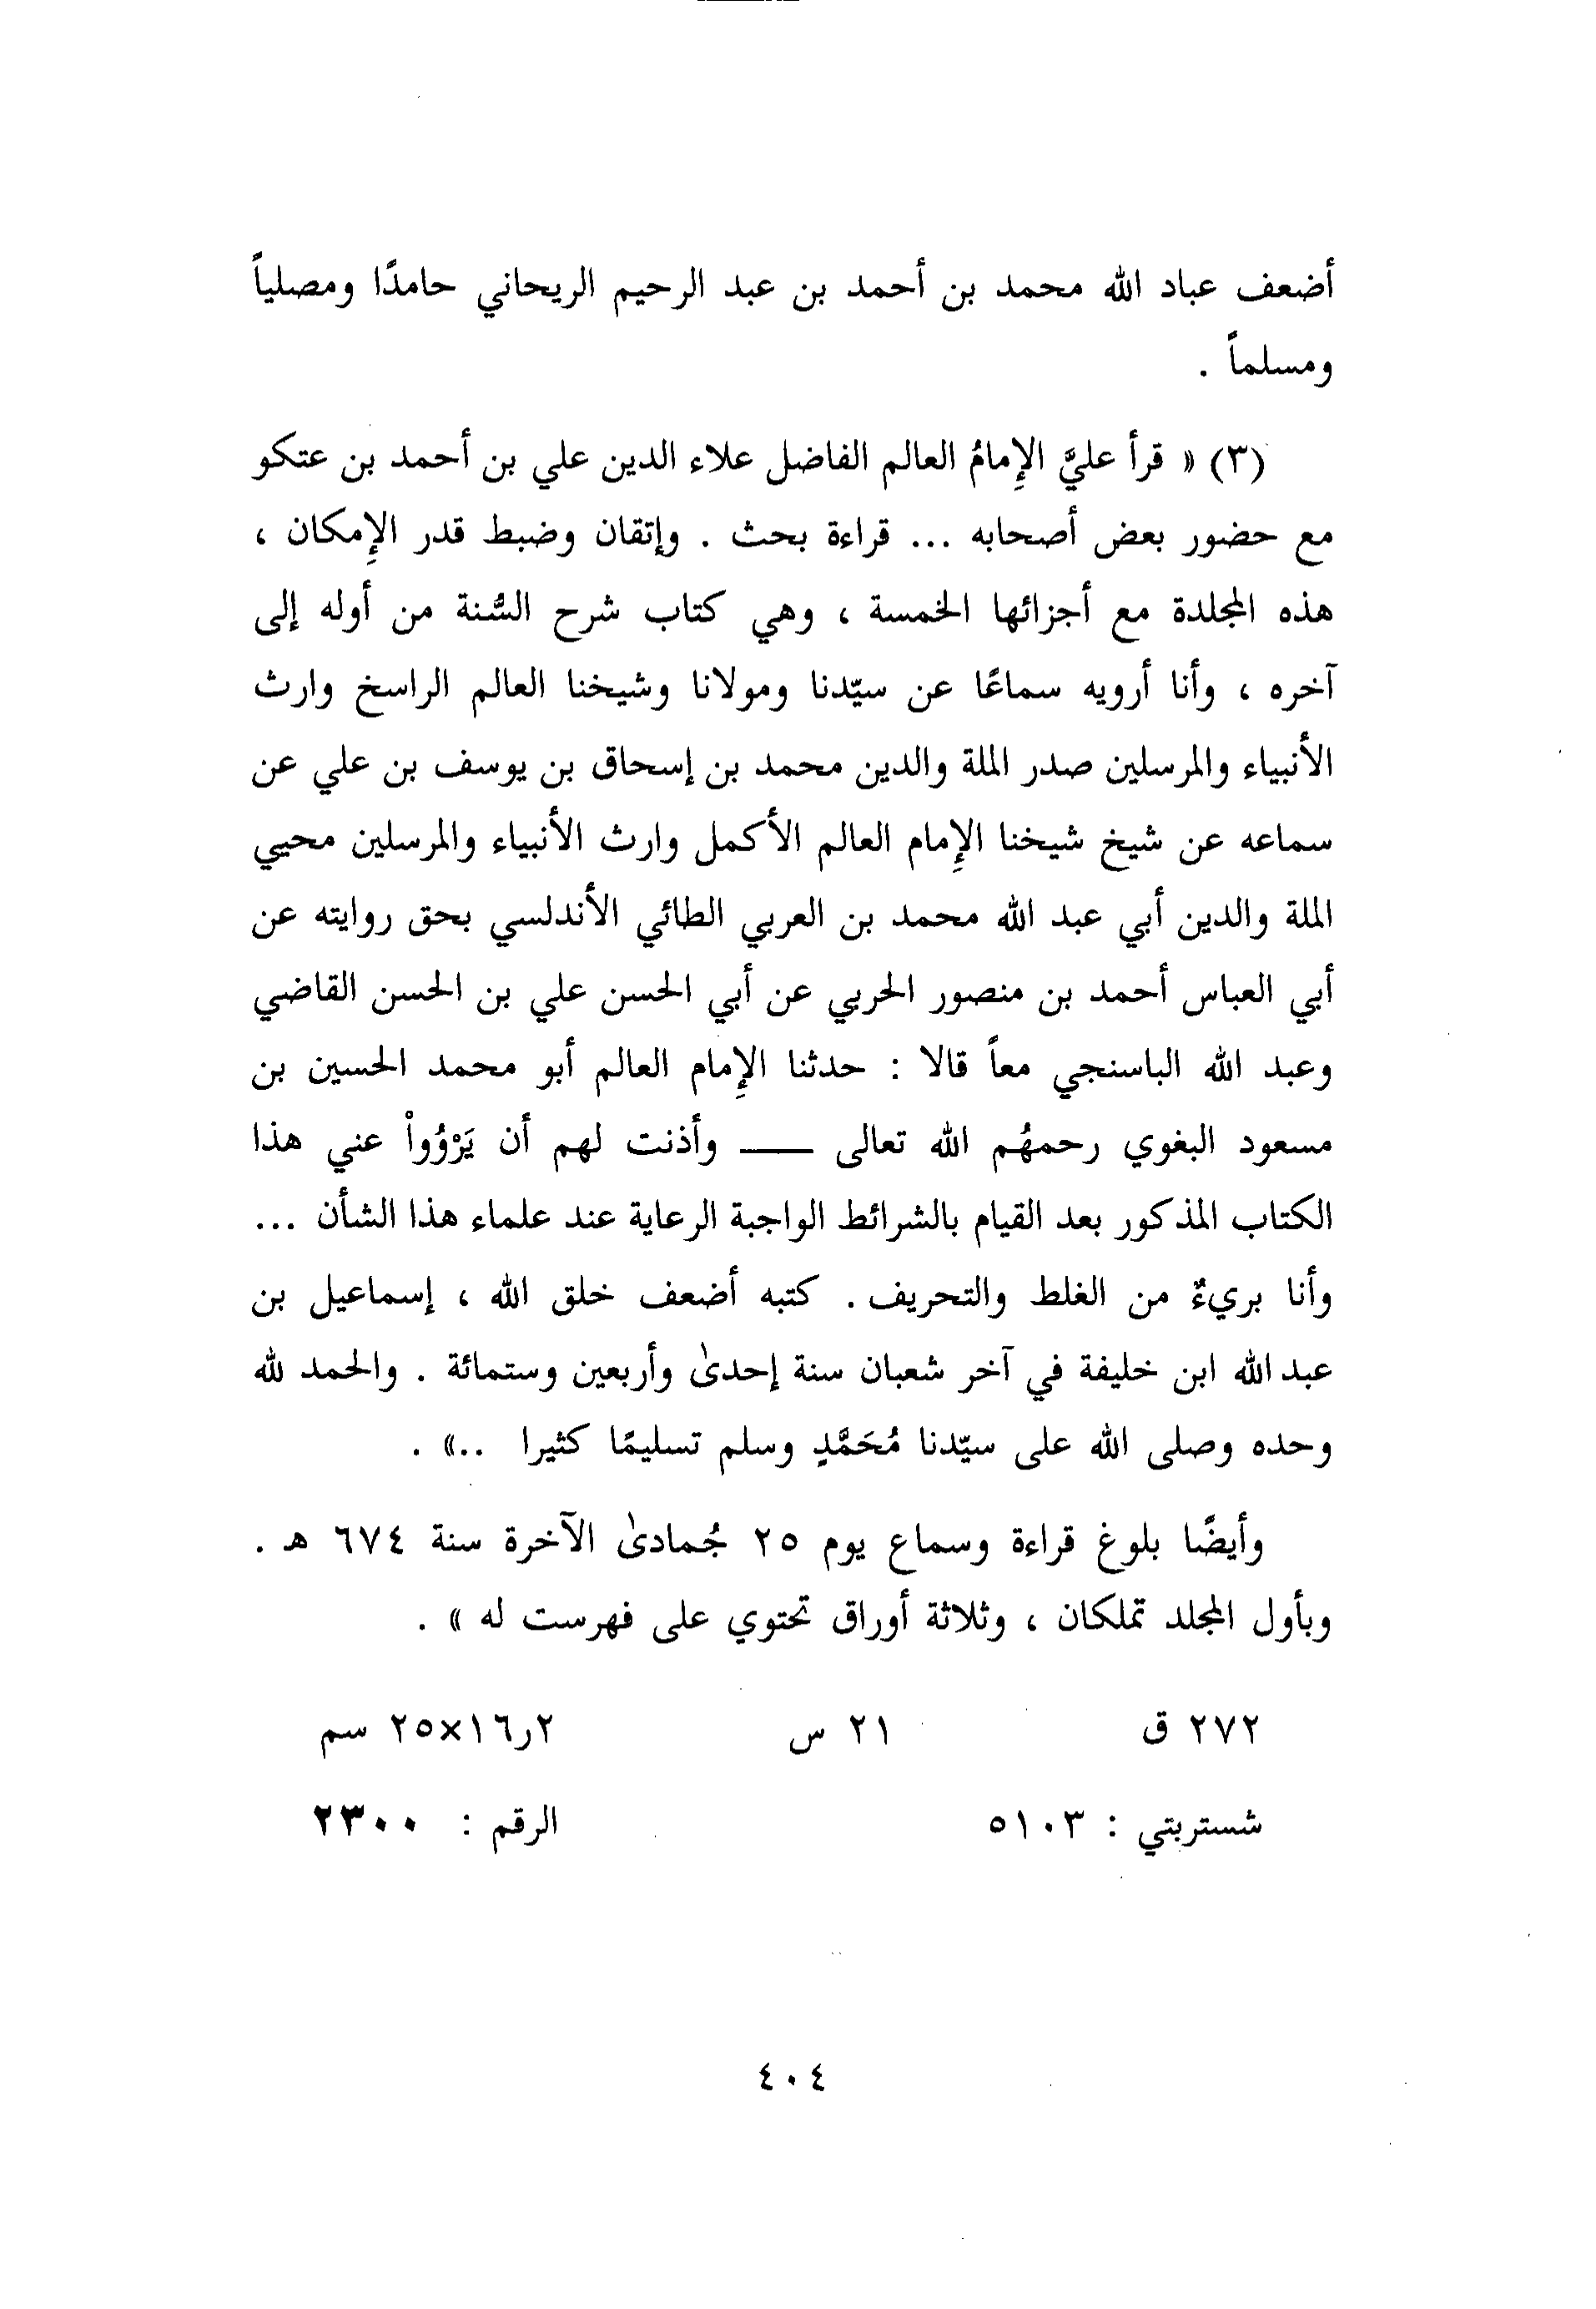 أضعف عباد الله محمد بن أحمد بن عبد الرحيم الريحاني حامدًا ومصلياً
ومسلماً .
(٣) « قرأ عليَّ الإِمامُ العالم الفاضل علاء الدين علي بن أحمد بن عتكو
مع حضور بعض أصحابه ... قراءة بحث . وإتقان وضبط قدر الإِمكان ،
هذه المجلدة مع أجزائها الخمسة ، وهي كتاب شرح السُّنة من أوله إلى
آخره ، وأنا أرويه سماعًا عن سيّدنا ومولانا وشيخنا العالم الراسخ وارث
الأنبياء والمرسلين صدر الملة والدين محمد بن إسحاق بن يوسف بن علي عن
سماعه عن شيخ شيخنا الإِمام العالم الأكمل وارث الأنبياء والمرسلين محيي
الملة والدين أبي عبد الله محمد بن العربي الطائي الأندلسي بحق روايته عن
أبي العباس أحمد بن منصور الحربي عن أبي الحسن علي بن الحسن القاضي
وعبد الله الباسنجي معاً قالا : حدثنا الإِمام العالم أبو محمد الحسين بن
مسعود البغوي رحمهُم الله تعالى ـــــ وأذنت لهم أن يَرْوُواْ عني هذا
الكتاب المذكور بعد القيام بالشرائط الواجبة الرعاية عند علماء هذا الشأن ...
وأنا بريءٌ من الغلط والتحريف . كتبه أضعف خلق الله ، إسماعيل بن
عبد الله ابن خليفة في آخر شعبان سنة إحدىٰ وأربعين وستمائة . والحمد لله
وحده وصلى الله على سيّدنا مُحَمَّدٍ وسلم تسليمًا كثيرا ..» .
وأيضًا بلوغ قراءة وسماع يوم ٢٥ جُمادىٰ الآخرة سنة ٦٧٤ هـ .
وبأول المجلد تملكان ، وثلاثة أوراق تحتوي على فهرست له » .
٢٧٢ ق ٢١ س ٢ر١٦×٢٥ سم
شستربتي : ٥١٠٣ الرقم : ٢٣٠٠
٤٠٤